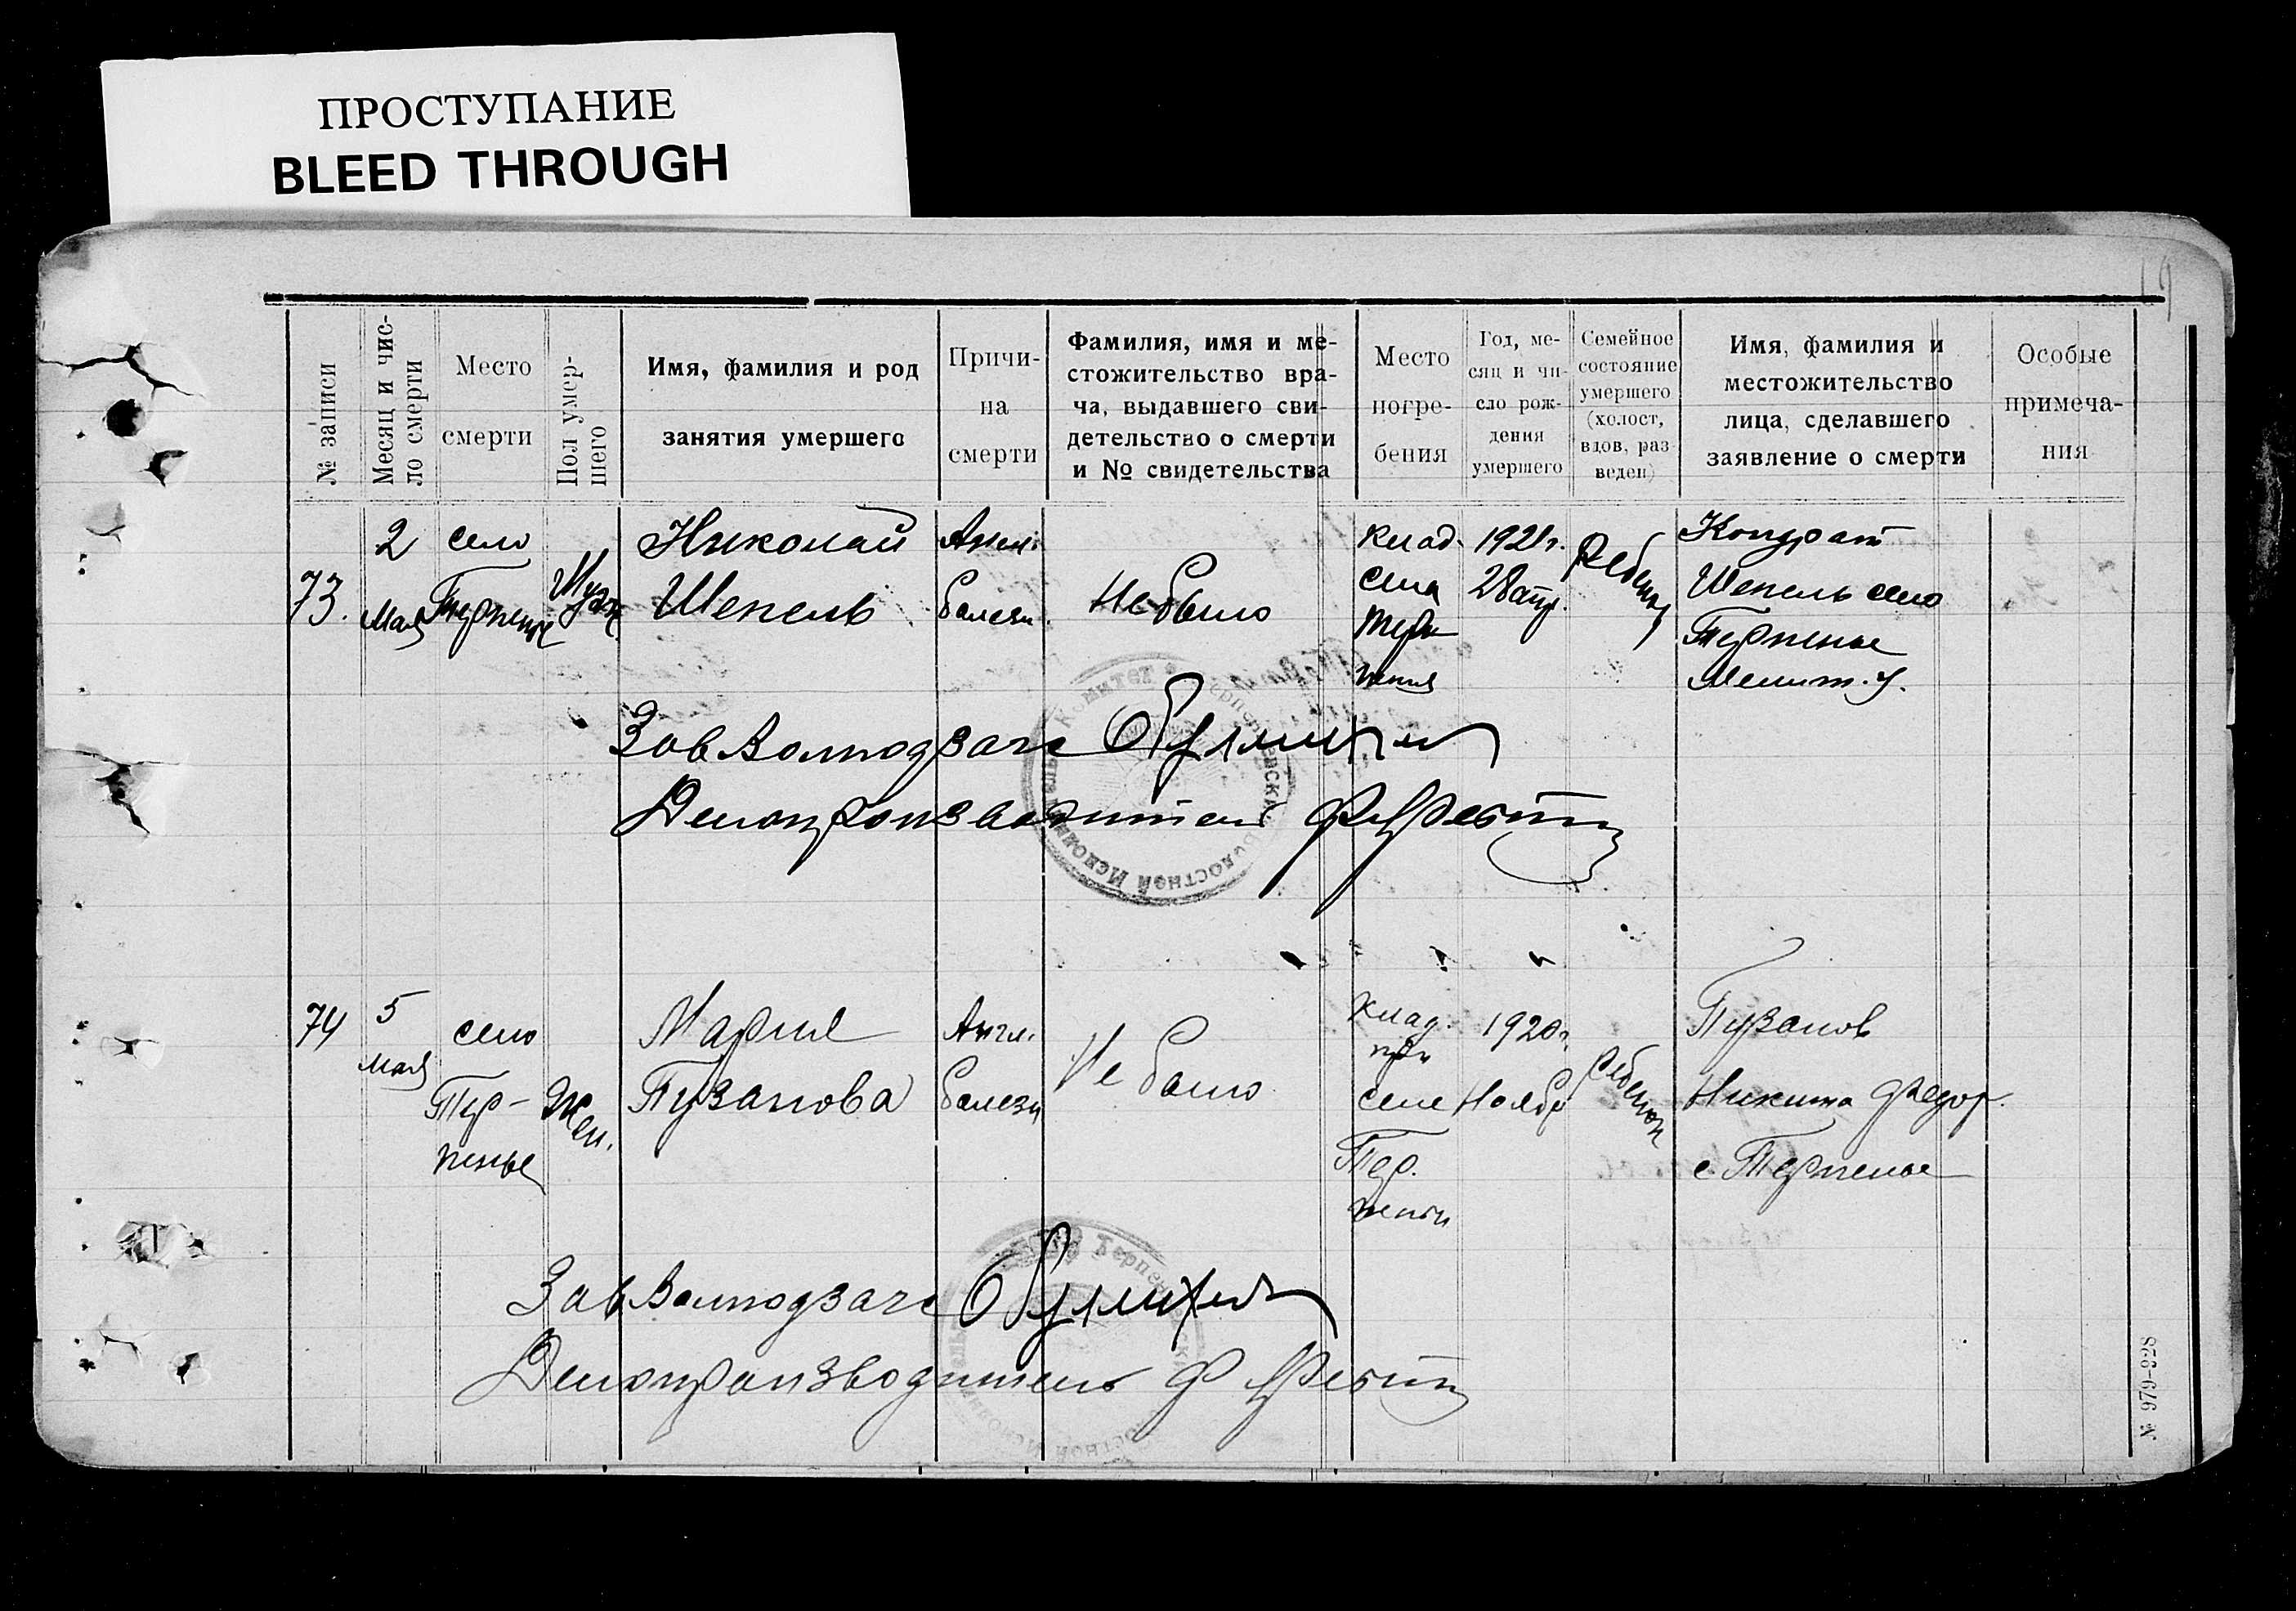 ПРОСТУПАНИЕ
BLEED THROUGH
19
№ записи
Месяц и чис-
ло смерти
Место
смерти
Пол умер-
шего
Имя, фамилия и род
занятия умершего
Причи-
на
смерти
Фамилия, имя и ме-
стожительство вра-
ча, выдавшего сви-
детельство о смерти
и № свидетельства
Место
погре-
бения
Год, ме-
сяц и чи-
сло рож-
дения
умершего
Семейное
состояние
умершего
(холост,
вдов, раз-
веден)
Имя, фамилия и
местожительство
лица, сделавшего
заявление о смерти
Особые
примеча-
ния
73.
2
мая
село
Терпенье
Муж.
Николай
Шепель
Англ.
болезн.
Не было
Клад.
села
Терп
пения
1921г.
28 апр.
Ребенок
Кондрат
Шепель село
Терпенье
Мелит. у.
Зав Волподзагс
Делопроизводитель
74
5
мая
село
Тер-
пенье
Жен.
Мария
Пузанова
Англ.
болезн
Не было
Клад.
при
селе
Тер.
пеньи
1920г.
Ноябр
Ребенок
Пузанов
Никита Федор.
с Терпенье
Зав Волподзагс
Делопроизводитель
№ 979-828